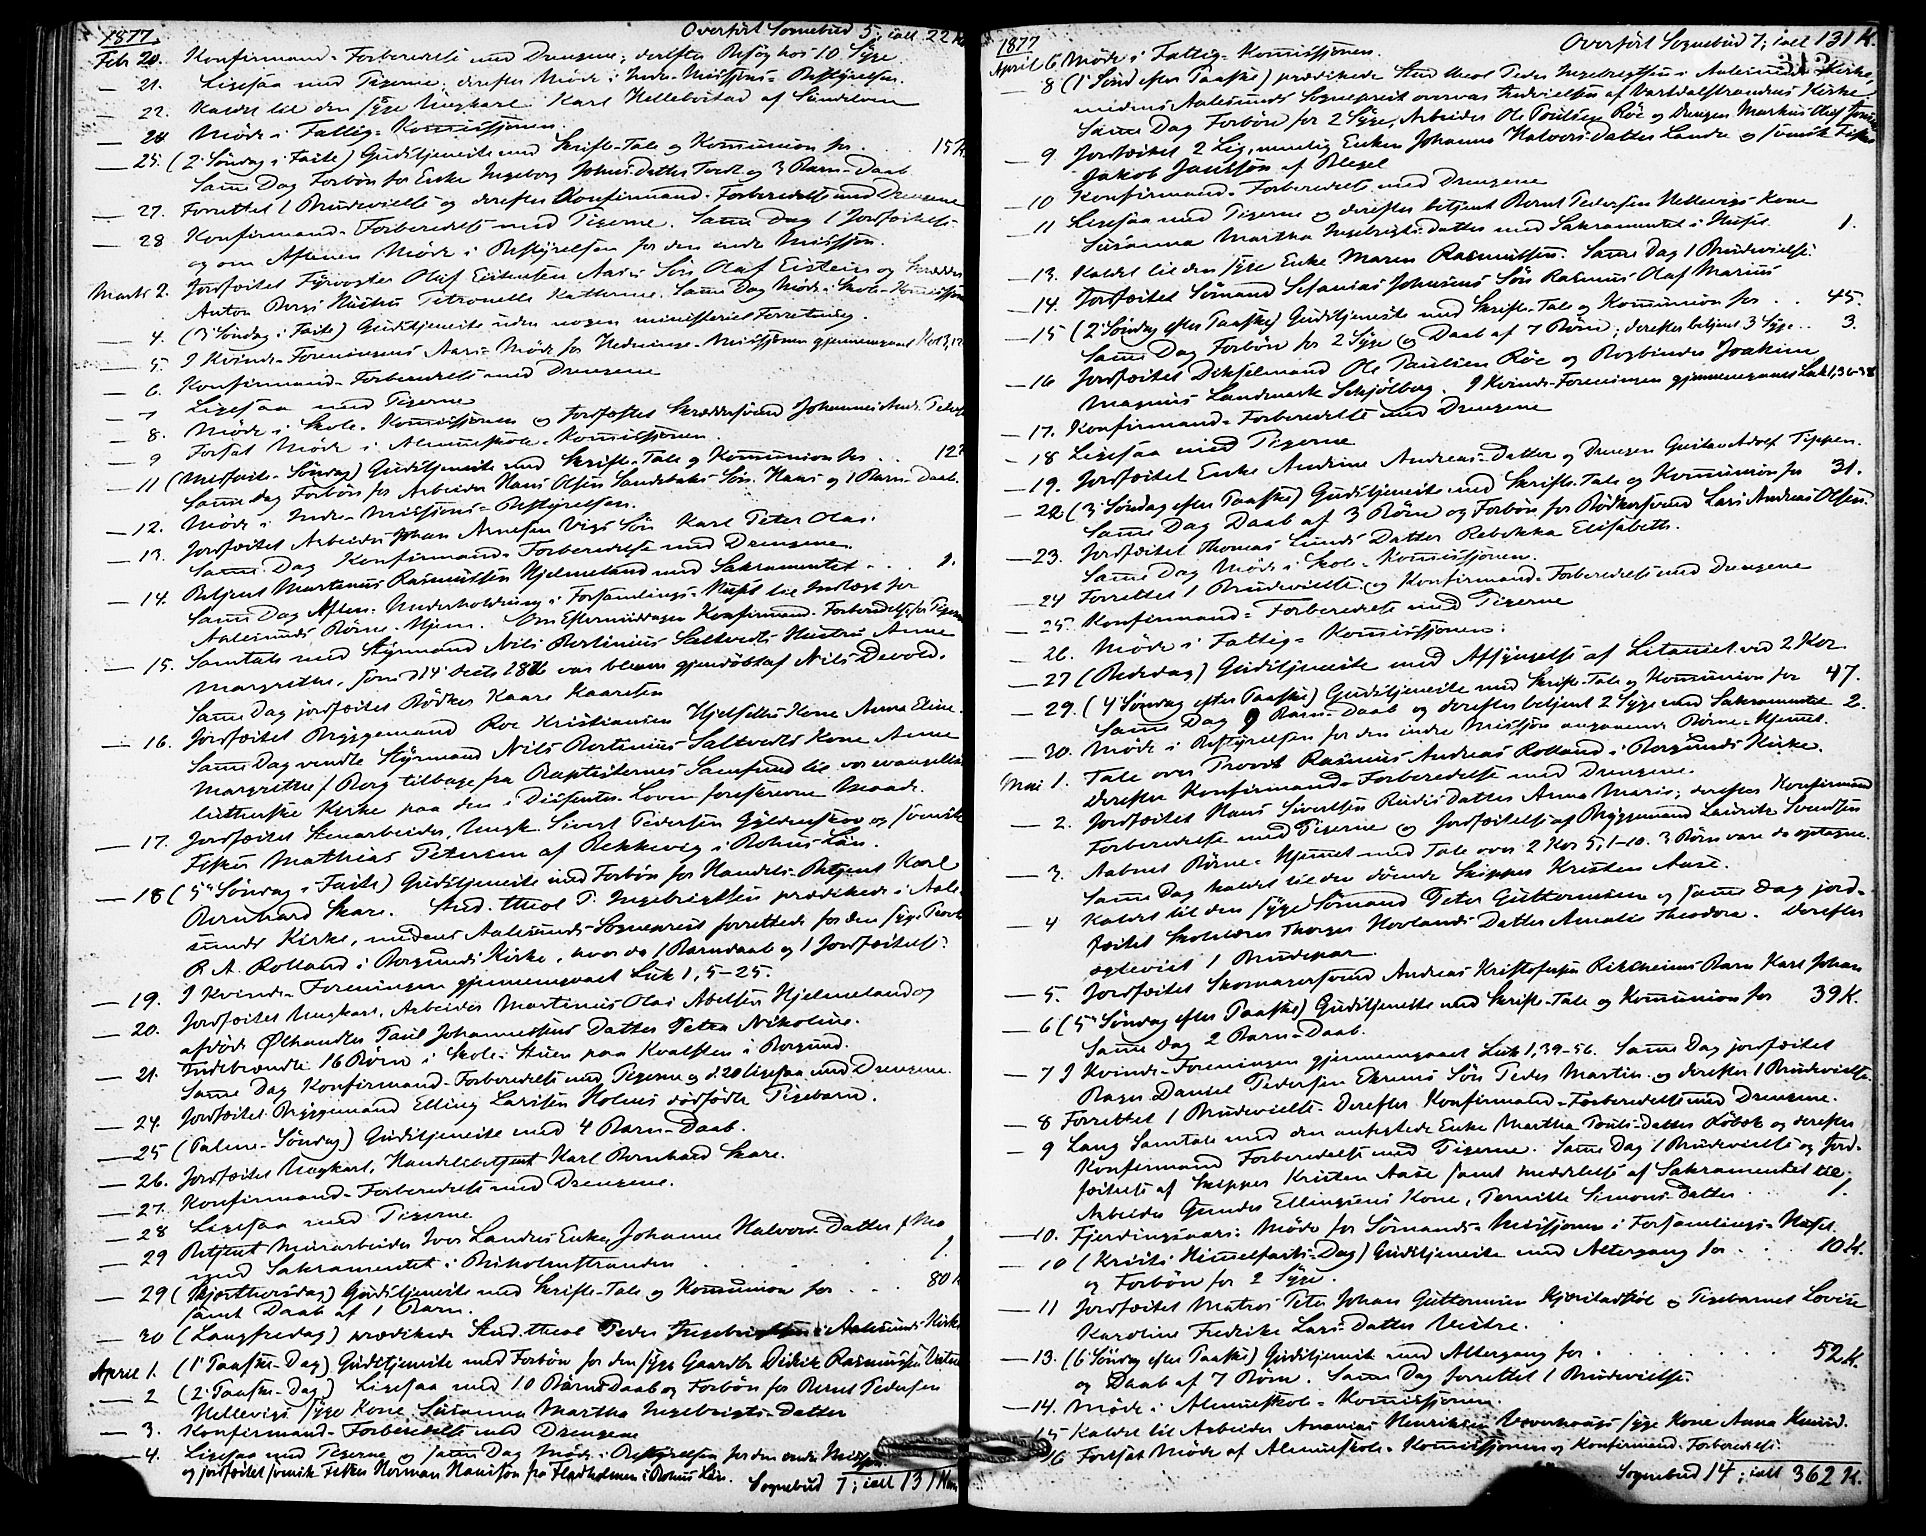 1877 Overført Sognebud 5; ialt 22 K.
Feb 20. Konfirmand-Forberedelse med Drengene; derefter Besøg hos 10 Syge.
— 21. Ligesaa med Pigerne, derefter Møde i Indre-Missions-Bestyrelsen
— 22. Kaldet til den syge Ungkarl Karl Hellebostad af
— 24 Møde i Fattig-Komissjonen
— 25. (2 Søndag i Faste) Gudstjeneste med Skrifte-Tale og Komunion for . . 15 K.
Same Dag Forbøn for Enke Ingeborg Johns-Datter og 3 Barn-Daab
— 27. Forrettet 1 Brudevielse og derefter Konfirmand-Forberedelse med Drengene
— 28 Konfirmand-Forberedelse med Pigerne. Same Dag 1 Jordfæstelse
og om Aftenen Møde i Bestyrelsen for den indre Missjon.
Marts 2. Jordfæstet Fyrvogter Olaf Søn Olaf Eistein og
Anton Bergs Hustru Petronelle Kathrine. Same Dag Møde i Skole-Komissjon
— 4. (3 Søndag i Faste) Gudstjeneste uden nogen ministeriel Forretning.
— 5. I Kvinde-Foreningens Aars-Møde for Hedninge-Missjonen gjennemgaaet
— 6. Konfirmand-Forberedelse med Drengene
— 7 Ligesaa med Pigerne
— 8. Møde i Skole-Komissjonen og Jordfæstet Skræddersvend Johannes
— 9 Forsat Møde i Almueskole-Komissjonen.
— 11 (Midfaste-Søndag) Gudstjeneste med Skrifte-Tale og Komunion for . . 12
Same dag Forbøn for Arbeider Hans Olsen Søn Hans og 1 Barn-Daab.
— 12. Møde i Indre-Missjons-Bestyrelsen.
— 13. Jordfæstet Arbeider Johan Arnesen Vigs Søn Karl Peter Olai.
Same Dag Konfirmand-Forberedelse med Drengene.
— 14. Betjent Martinus Rasmussen Hjelmeland med Sakramentet . . 1.
Same Dag Aften-Underholdning i Forsamlings-Huset til Indtægt for
Aalesunds Børne-Hjem. Om Eftermiddagen Konfirmand-Forberedelse for Pigerne
— 15. Samtale med Styrmand Nils Bertinius Saltvedts Hustru Anne
Margrethe, som var bleven gjendøbt af Nils Devold.
Same Dag jordfæstet Bødker Kaare Kaaresen
— 16. Jordfæstet Bryggemand Roe Kristiansen Hjelsets Kone Anna Eline.
Same Dag vendte Styrmand Nils Bertinius Saltvedts Kone Anne
Margrethe f Borg tilbage fra Baptisternes Samfund til vor evangelisk
lutherske Kirke paa den i Dissenter-Loven foreskrevne Maade.
— 17. Jordfæstet Stenarbeider, Ungk. Sivert Pedersen Gyldenskov og svensk
Fisker Mathias Petersen af Bekkevig i Bohus Län.
— 18 (5 Søndag i Faste) Gudstjeneste med Forbøn for Handels-Betjent Karl
Bernhard Skare. Stud. theol P. Ingebrigtsen prædikede i Aale-
sunds Kirke, medens Aalesunds Sognepræst forrettede for den syge Provst
R. A. Rolland i Borgunds Kirke, hvor da 1 Barndaab og 1 Jordfæstelse.
— 19. I Kvinde-Foreningen gjennemgaaet Luk 1, 5-25.
— 20. Jordfæstet Ungkarl, Arbeider Martinus Olai Abelsen Hjelmeland og
afdøde Ølhandler Paul Johannessens Datter Petra Nikoline.
— 21. Indebrændte 16 Børn i Skole-Stuen paa Kvalsten i Borgund.
Same Dag Konfirmand-Forberedelse med Pigerne og d. 20 ligesaa med Drengene.
— 24. Jordfæstet Bryggemand Elling Larsen Holms dødfødte Pigebarn.
— 25 (Palme-Søndag) Gudstjeneste med 4 Barn-Daab.
— 26. Jordfæstet Ungkarl, Handelsbetjent Karl Bernhard Skare.
— 27. Konfirmand-Forberedelse med Drengene.
— 28 Ligesaa med Pigerne
— 29 Betjent Murarbeider Iver Landres Enke Johanne Halvors-Datter
med Sakramentet i Buholmstranden . . 1.
— 29 (Skjærthorsdag) Gudstjeneste med Skrifte-Tale og Komunion for . . 80 K
samt Daab af 1 Barn.
— 30 (Langfredag) prædikede Stud. theol Peder Ingebrigtsen i Aalesunds Kirke
April 1. (1 Paaske-Dag) Gudstjeneste med Forbøn for den syge Gaardbr. Didrik Rasmussen
— 2 (2 Paaske-Dag) Ligesaa med 10 Børns Daab og Forbøn for Bernt Pedersen
Hellevigs syge Kone Susanna Martha Ingebrigts-Datter
— 3. Konfirmand-Forberedelse med Drengene
— 4. Ligesaa med Pigerne og same Dag Møde i Bestyrelsen for den indre Missjon
og jordfæstet svensk Fisker Herman Hansson fra Flatholmen i Bohus Län.
Sognebud 7; ialt 131 Kom.
1877 Overført Sognebud 7; ialt 131 K.
313
April 6 Møde i Fattig-Komissjonen.
— 8 (1 Sønd efter Paaske) prædikede Stud theol Peder Ingebrigtsen i Aalesunds Kirke,
medens Aalesunds Sognepræst overvar Indvielsen af Vartdalstrandens Kirke.
Same Dag Forbøn for 2 Syge, Arbeider Ole Paulsen Røe og Drengen Markus Olaf
— 9 Jordfæstet 2 Lig, nemlig Enken Johanne Halvors-Datter Landre og svensk Fisker
Jakob Jansson af
— 10 Konfirmand-Forberedelse med Drengene
— 11 Ligesaa med Pigerne og derefter betjent Bernt Pedersen Hellevigs Kone
Susanna Martha Ingebrigts-Datter med Sakramentet i Huset 1.
— 13. Kaldet til den syge Enke Maren Rasmussen. Same Dag 1 Brudevielse.
— 14. Jordfæstet Sømand Sefanias Johnsens Søn Rasmus Olaf Marius
— 15 (2 Søndag efter Paaske) Gudstjeneste med Skrifte-Tale og Komunion for . . 45.
Same Dag Forbøn for 2 Syge og Daab af 7 Børn; derefter betjent 3 Syge . . 3.
— 16 Jordfæstet Ole Paulsen Røe og Bogbinder Joakim
Magnus Landmark Schjølberg. I Kvinde-Foreningen gjennemgaaet Luk 1, 36-38
— 17. Konfirmand-Forberedelse med Drengene
— 18 Ligesaa med Pigerne
— 19. Jordfæstet Enke Andrine Andreas-Datter og Drengen Gustav Adolf Tippen.
— 22 (3 Søndag efter Paaske) Gudstjeneste med Skrifte-Tale og Komunion for 31.
Same Dag Daab af 3 Børn og Forbøn for Bødkersvend Lars Andreas Olsen.
— 23. Jordfæstet Thomas Lunds Datter Rebekka Elisabeth.
Same Dag Møde i Skole-Komissjonen.
— 24 Forrettet 1 Brudevielse og Konfirmand-Forberedelse med Drengene
— 25. Konfirmand-Forberedelse med Pigerne
— 26. Møde i Fattig-Komissjonen.
— 27 (Bededag) Gudstjeneste med Afsyngelse af Litaniet ved 2 Kor
— 29. (4 Søndag efter Paaske) Gudstjeneste med Skrifte-Tale og Komunion for 47.
Same Dag 9 Barn-Daab og derefter betjent 2 Syge med Sakramentet 2.
— 30. Møde i Bestyrelsen for den indre Missjon angaaende Børne-Hjemet.
Mai 1. Tale over Provst Rasmus Andreas Rolland i Borgunds Kirke.
Derefter Konfirmand-Forberedelse med Drengene.
— 2. Jordfæstet Hans Sivertsen Datter Anna Marie; derefter Konfirmand
Forberedelse med Pigerne og Jordfæstelse af Bryggemand Laurits Svendsen
— 3. Aabnet Børne-Hjemet med Tale over 2 Kor 5, 1-10. 3 Børn vare da optagne.
Same Dag kaldet til den døende Skipper Kristen Aase.
— 4 Kaldet til den syge Sømand Peter Guttormsen og same Dag jord-
fæstet Skolelærer Thorger Hovlands Datter Amalie Theodora. Derefter
ægteviet 1 Brudepar
— 5. Jordfæstet Skomagersvend Andreas Kristofersen Rekheims Barn Karl Johan
— 6 (5 Søndag efter Paaske) Gudstjeneste med Skrifte-Tale og Komunion for 39 K.
Same Dag 2 Barn-Daab.
— 7 I Kvinde-Foreningen gjennemgaaet Luk 1, 39-56. Same Dag jordfæstet
Bager Daniel Pedersen Ekrems Søn Peder Martin og derefter 1 Brudevielse.
— 8 Forrettet 1 Brudevielse. Derefter Konfirmand-Forberedelse med Drengene.
— 9 Lang Samtale med den anfegtede Enke Martha Pouls-Datter Røbek og derefter
Konfirmand Forberedelse med Pigerne. Same Dag 1 Brudevielse og Jord-
fæstelse af Skipper Kristen Aase samt Meddelelse af Sakramentet til
Arbeider Gunder Ellingsens Kone, Pernille Simons-Datter . 1.
— 10. Fjerdingaars-Møde for Sømands-Missjonen i Forsamlings-Huset
— 10 (Kristi Himmelfarts-Dag) Gudstjeneste med Altergang for . . 10 K.
og Forbøn for 2 Syge.
— 11 Jordfæstet Matros Peter Johan Guttormsen og Pigebarnet Lovise
Karoline Fredrike Lars-Datter Vestre.
— 13. (6 Søndag efter Paaske) Gudstjeneste med Altergang for . . 52 K.
og Daab af 7 Børn. Same Dag forrettet 1 Brudevielse
— 14. Møde i Almueskole-Komissjonen.
— 15 Kaldet til Arbeider Ananias Henriksen syge Kone Anna Knud.
— 16 Fortsat Møde af Almueskole-Komissjonen og Konfirmand-Forberedelse.
Sognebud 14; ialt 362 K.